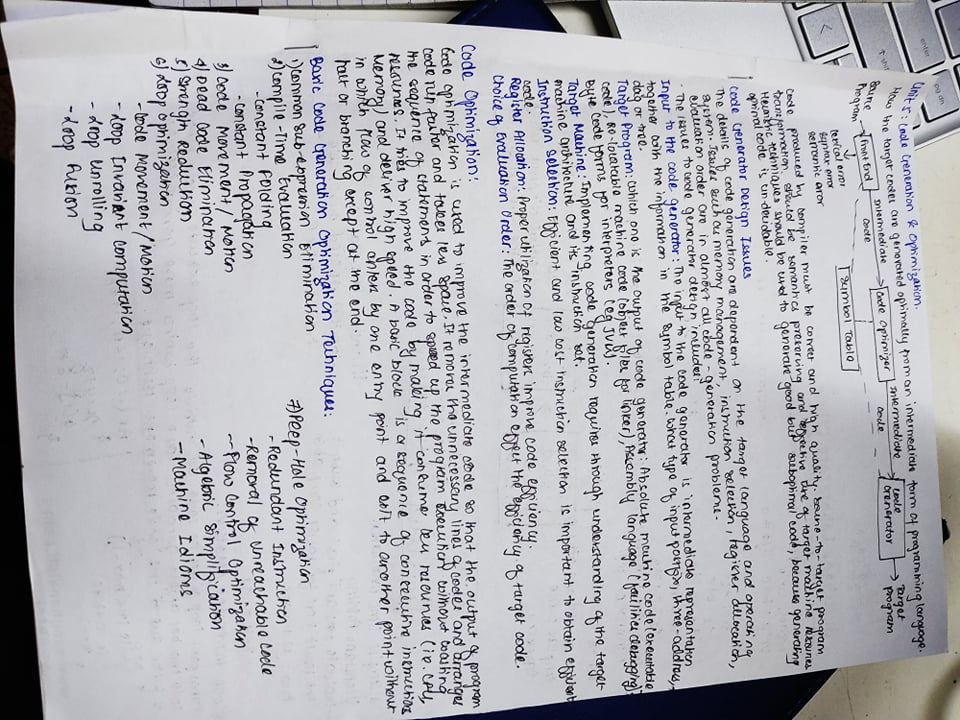 Unit: Code Generation & Optimization.
How the target codes are generated optimally from an intermediate form of programming language.
Source Program → Front End → Intermediate Code → Code Optimizer → Intermediate code → Code Generator → Target program
lexical error
syntax error
semantic error
Symbol Table
Code produced by compiler must be correct and high quality. Source-to-target program
transformation should be semantics preserving and effective use of target machine resources
Heuristic techniques should be used to generate good but suboptimal code, because generating
optimal code is undecidable.
Code Generator Design Issues
The details of code generation are dependent on the target language and operating
system. Issues such as memory management, instruction selection, register allocation,
evaluation order are in almost all code-generation problems.
The issues to code generator design includes:
Input to the code generator: The input to the code generator is intermediate representation
together with the information in the symbol table. What type of input postfix, three-address,
dag or tree.
Target Program: Which one is the output of code generator: Absolute machine code (executable
code), Re-locatable machine code (object files for linker), Assembly language (facilities debugging),
Byte code forms for interpreters (eg JVM).
Target Machine: Implementing code generation requires through understanding of the target
machine architecture and its instruction set.
Instruction Selection: Efficient and low cost instruction selection is important to obtain efficient
code.
Register Allocation: Proper utilization of registers improve code efficiency.
Choice of Evaluation Order: The order of computation effect the efficiency of target code.
Code Optimization:
Code optimization is used to improve the intermediate code so that the output of program
code run faster and takes less space. It removes the unnecessary lines of codes and arranges
the sequence of statements in order to speed up the program execution without wasting
resources. It tries to improve the code by making it consume less resources (i.e. CPU,
Memory) and deliver high speed. A basic block is a sequence of consecutive instructions
in which flow of control enters by one entry point and exit to another point without
halt or branching except at the end.
Basic Code Generation Optimization Techniques:
1) Common Sub-expression Elimination
2) Compile-Time Evaluation
- Constant Folding
- Constant Propagation
3) Code Movement / Motion
4) Dead Code Elimination
5) Strength Reduction
6) Loop optimization
- Code Movement / Motion
- Loop Invariant computation
- Loop Unrolling
- Loop Fusion
7) Peep-Hole Optimization
- Redundant Instruction
- Removal of unreachable code
- Flow Control Optimization
- Algebric Simplification
- Machine Idioms